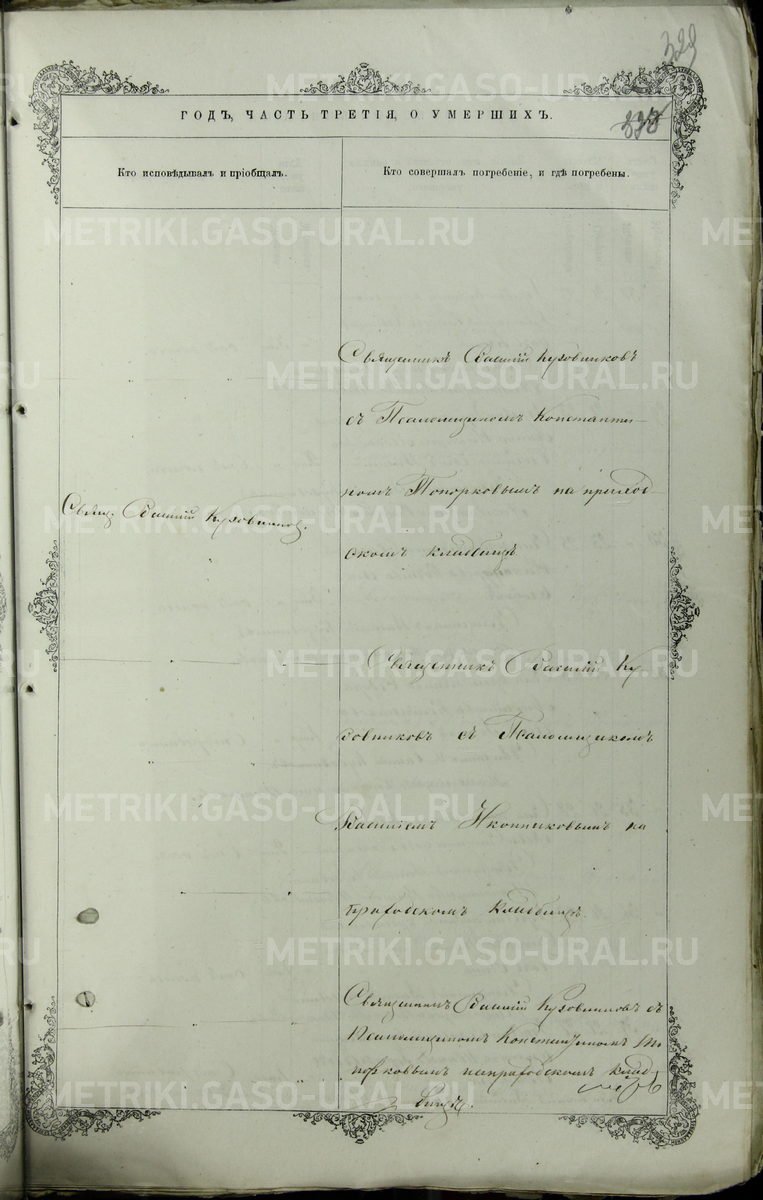 329
338
ГОДЪ, ЧАСТЬ ТРЕТІЯ, О УМЕРШИХЪ.
Кто исповѣдывалъ и пріобщалъ.
Кто совершалъ погребеніе, и гдѣ погребены.
Священникъ Василій Кузовниковъ
съ Псаломщикомъ Константи-
номъ Топорковымъ на приход-
скомъ кладбищѣ
Свящ. Василій Кузовниковъ.
Священникъ Василій Ку
зовниковъ съ Псаломщикомъ
Василіемъ Иконниковымъ на
приходскомъ кладбищѣ.
Священникъ Василій Кузовниковъ съ
Псаломщикомъ Константиномъ То
порковымъ на приходскомъ клад
бищѣ.
METRIKI.GASO-URAL.RU